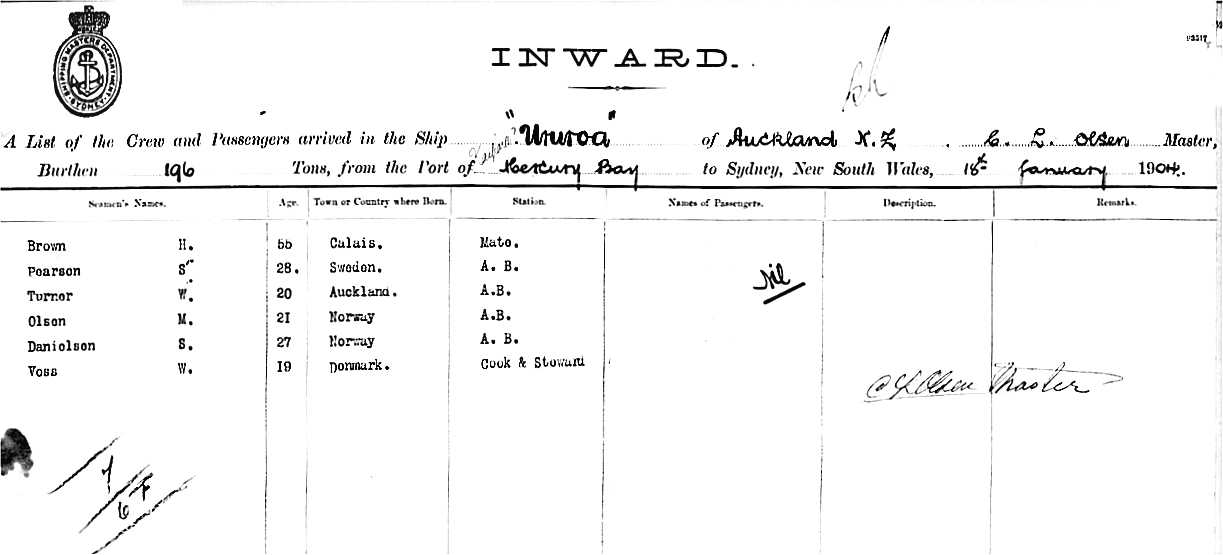 SHIPPING MASTERS DEPARTMENT SYDNEY
INWARD.
A List of the Crew and Passengers arrived in the Ship "Ururoa" of Auckland N.Z. C. L. Olsen Master,
Burthen 196 Tons, from the Port of Mercury Bay to Sydney, New South Wales, 18th January 1904.
Seamen's Names. Age. Town or Country where Born. Station. Names of Passengers. Description. Remarks.
Brown H. 55 Calais. Mate.
Pearson S. 28. Sweden. A. B.
Nil
Turner W. 20 Auckland. A.B.
Olson M. 21 Norway A.B.
Danielson S. 27 Norway A. B.
Voss W. 19 Denmark. Cook & Steward
C L Olsen Master
7
6 F